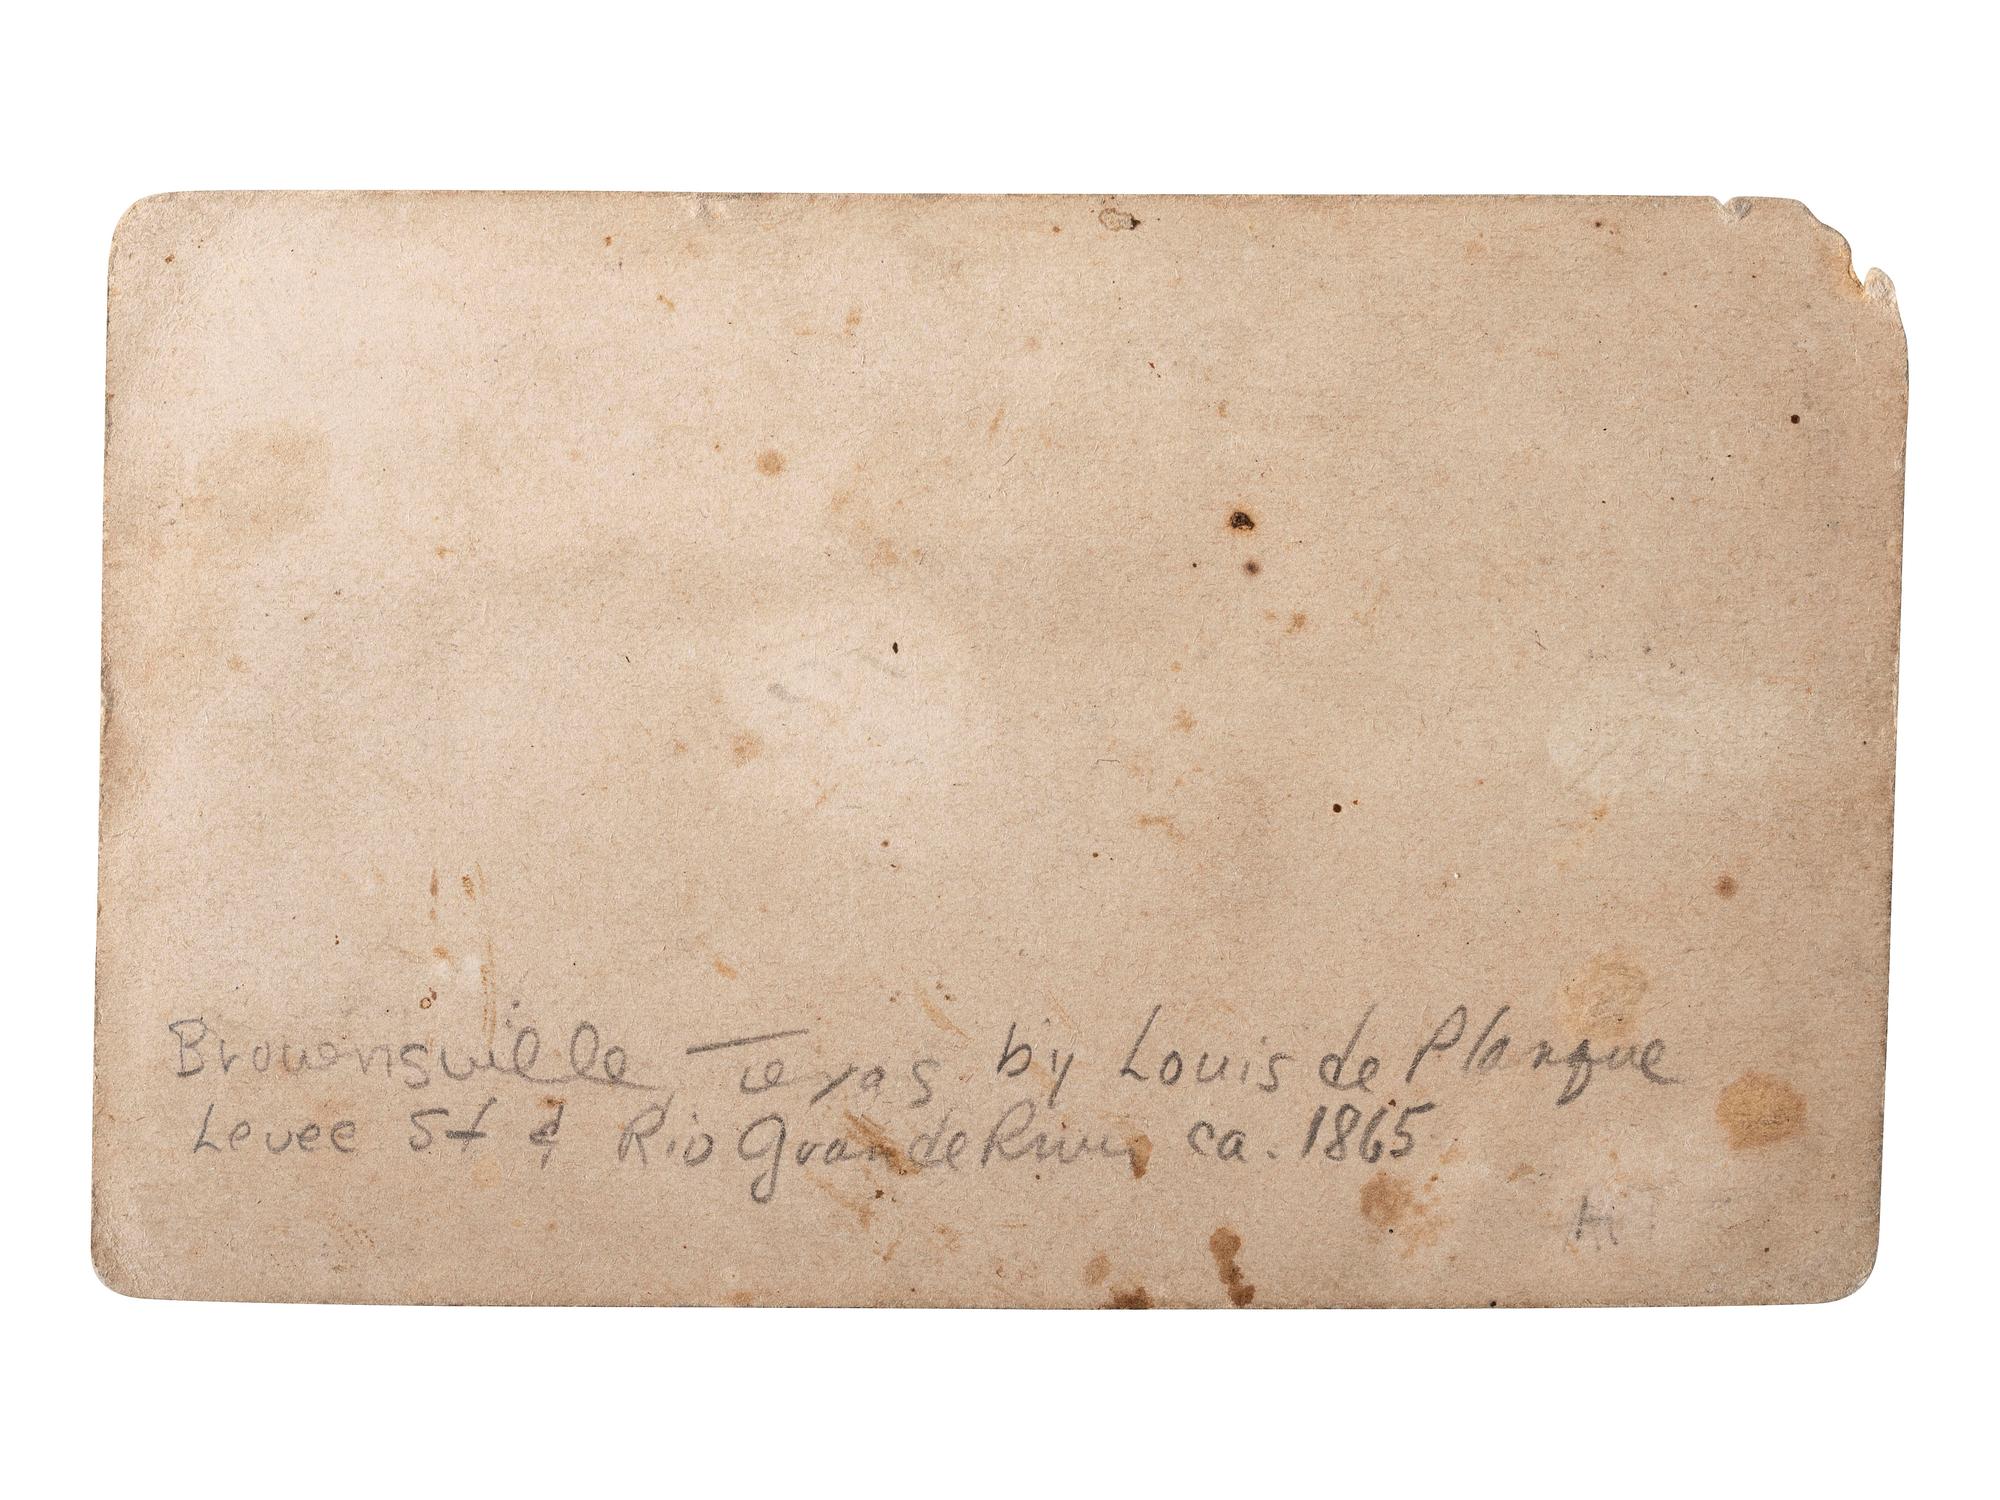 Brownsville Texas by Louis de Planque
Levee St & Rio Grande River ca. 1865